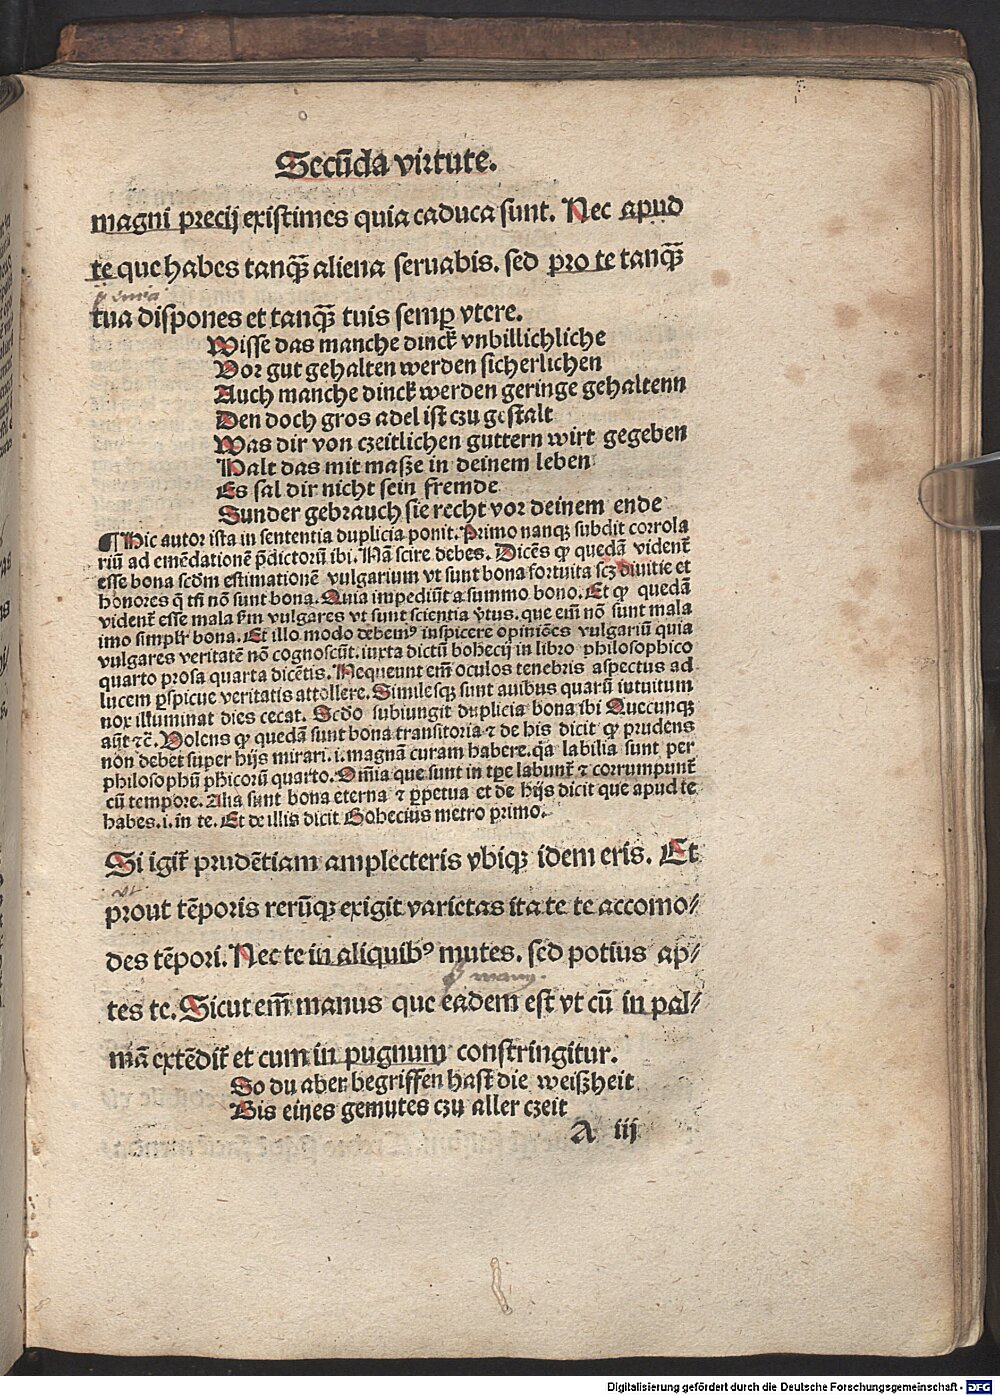 Secūda virtute.
magni precij existimes quia caduca sunt. Nec apud
te que habes tanq̄ȝ aliena seruabis. sed pro te tanq̄ȝ
tua dispones et tanq̄ȝ tuis semꝑ vtere.
Wisse das manche dinck vnbillichliche
Vor gut gehalten werden sicherlichen
Auch manche dinck werden geringe gehaltenn
Den doch gros adel ist czu gestalt
Was dir von czeitlichen guttern wirt gegeben
Halt das mit masze in deinem leben
Es sal dir nicht sein fremde
Sunder gebrauch sie recht vor deinem ende
¶ Hic autor ista in sententia duplicia ponit. Primo nanqȝ subdit corrola
riū ad emēdationē p̄dictorū ibi. Nā scire debes. Dicēs ꝙ quedā vident̄
esse bona scdm estimationē vulgarium vt sunt bona fortuita scȝ diuitie et
honores q̄ tn̄ nō sunt bona. Quia impediūt a summo bono. Et ꝙ quedā
vident̄ esse mala fm vulgares vt sunt scientia v̄tus. que em̄ nō sunt mala
imo simplr̄ bona. Et illo modo debemꝰ inspicere opiniōes vulgariū quia
vulgares veritatē nō cognoscūt. iuxta dictū bohecij in libro philosophico
quarto prosa quarta dicētis. Nequeunt em̄ oculos tenebris aspectus ad
lucem ꝑspicue veritatis attollere. Similesqȝ sunt auibus quarū intuitum
nox illuminat dies cecat. Scdo subiungit duplicia bona ibi Quecunqȝ
aūt ⁊c̄. Volens ꝙ quedā sunt bona transitoria ⁊ de his dicit ꝙ prudens
non debet super hijs mirari. i. magnā curam habere. q̄a labilia sunt per
philosophū ph̄icorū quarto. Om̄ia que sunt in tp̄e labunt̄ ⁊ corrumpunt̄
cū tempore. Alia sunt bona eterna ⁊ ꝑpetua et de hijs dicit que apud te
habes. i. in te. Et de illis dicit Bohecius metro primo.
Si igit̄ prudētiam amplecteris vbiqȝ idem eris. Et
prout tēporis rerūqȝ exigit varietas ita te te accomo/
des tēpori. Nec te in aliquibꝰ mutes. sed potius ap/
tes te. Sicut em̄ manus que eadem est vt cū in pal/
mā extēdit̄ et cum in pugnum constringitur.
So du aber begriffen hast die weiszheit
Bis eines gemutes czu aller czeit
A iij
Digitalisierung gefördert durch die Deutsche Forschungsgemeinschaft - DFG